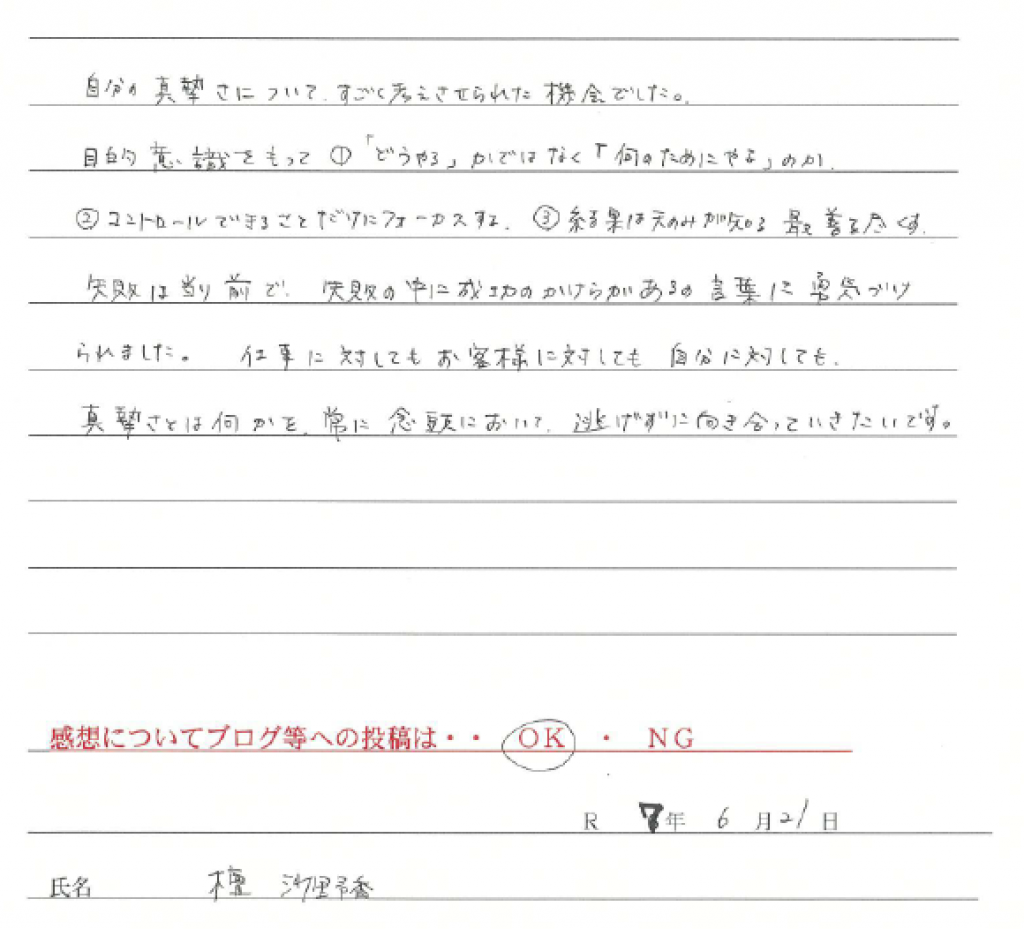 自分の真摯さについて、すごく考えさせられた機会でした。
目的意識をもって ①「どうやる」かではなく「何のためにやる」のか、
②コントロールできることだけにフォーカスする、③結果は天のみが知る 最善を尽くす、
失敗は当り前で、失敗の中に成功のかけらがあるの言葉に勇気づけ
られました。 仕事に対してもお客様に対しても 自分に対しても、
真摯さとは何かを、常に念頭において、逃げずに向き合っていきたいです。
感想についてブログ等への投稿は・・ OK ・ NG
R 7年 6月21日
氏名 檀 沙里香